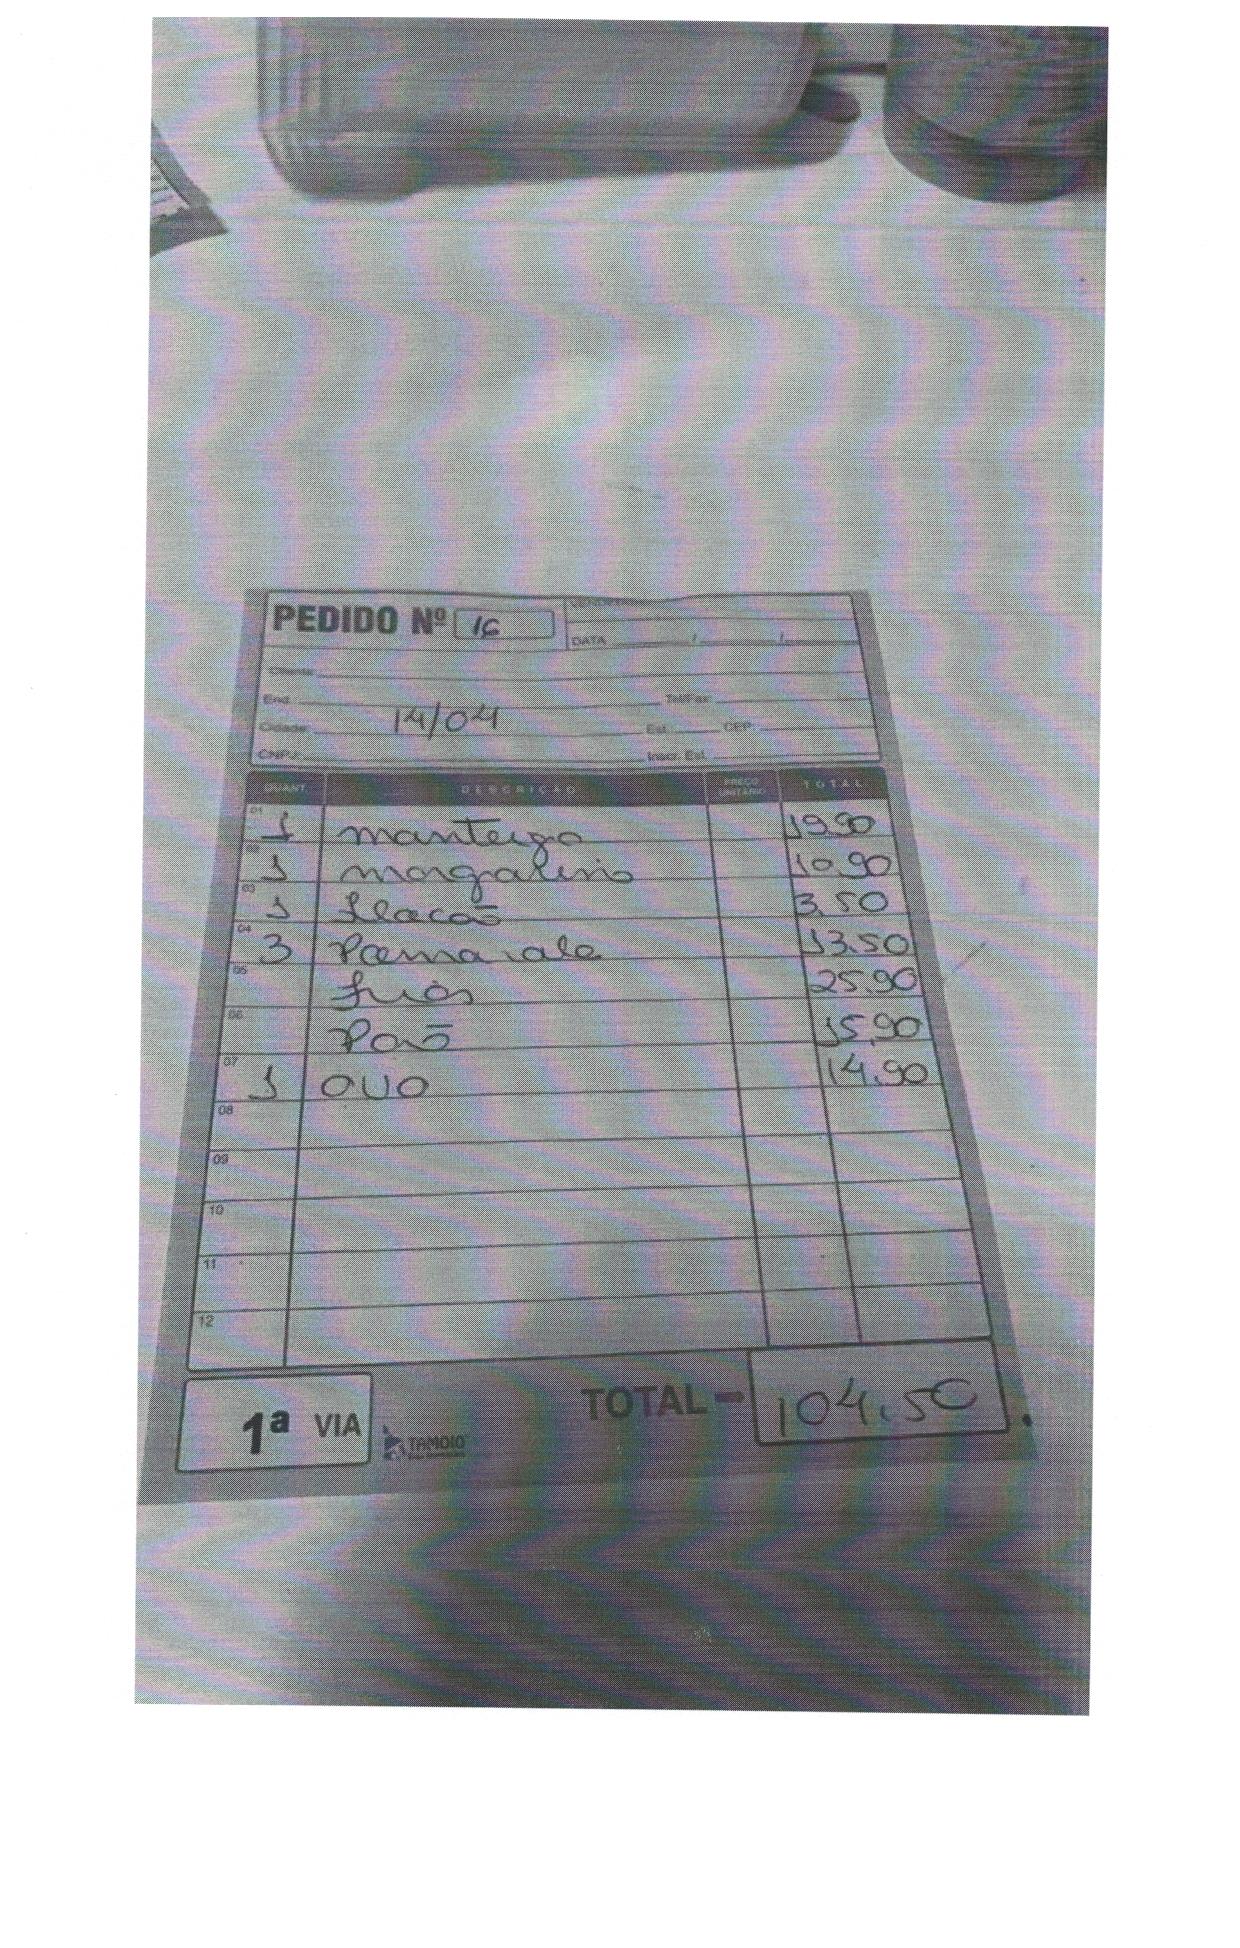 PEDIDO Nº 16
DATA / /
Cliente:
End.: Tel/Fax:
14/04
Cidade: Est.: CEP:
CNPJ: Inscr. Est.
QUANT. DESCRIÇÃO PREÇO UNITÁRIO TOTAL
01 1 manteiga 19.90
02 1 margalino 10.90
03 1 3.50
04 3 13.50
05 frios 25.90
06 Paõ 15.90
07 1 OVO 14.90
08
09
10
11
12
1ª VIA TAMOIO TOTAL 104.50